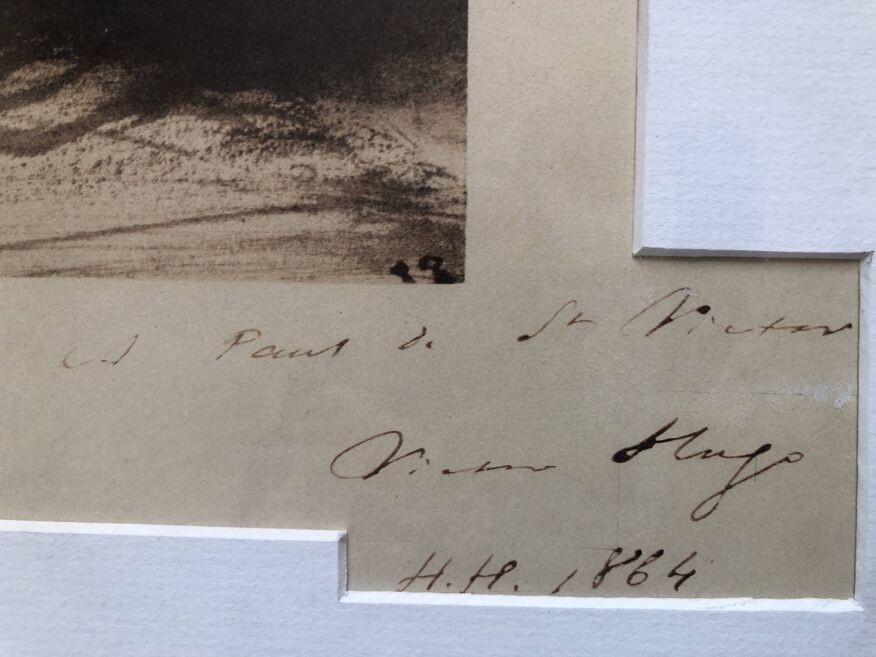 à Paul de St Victor
Victor Hugo
H.H. 1864